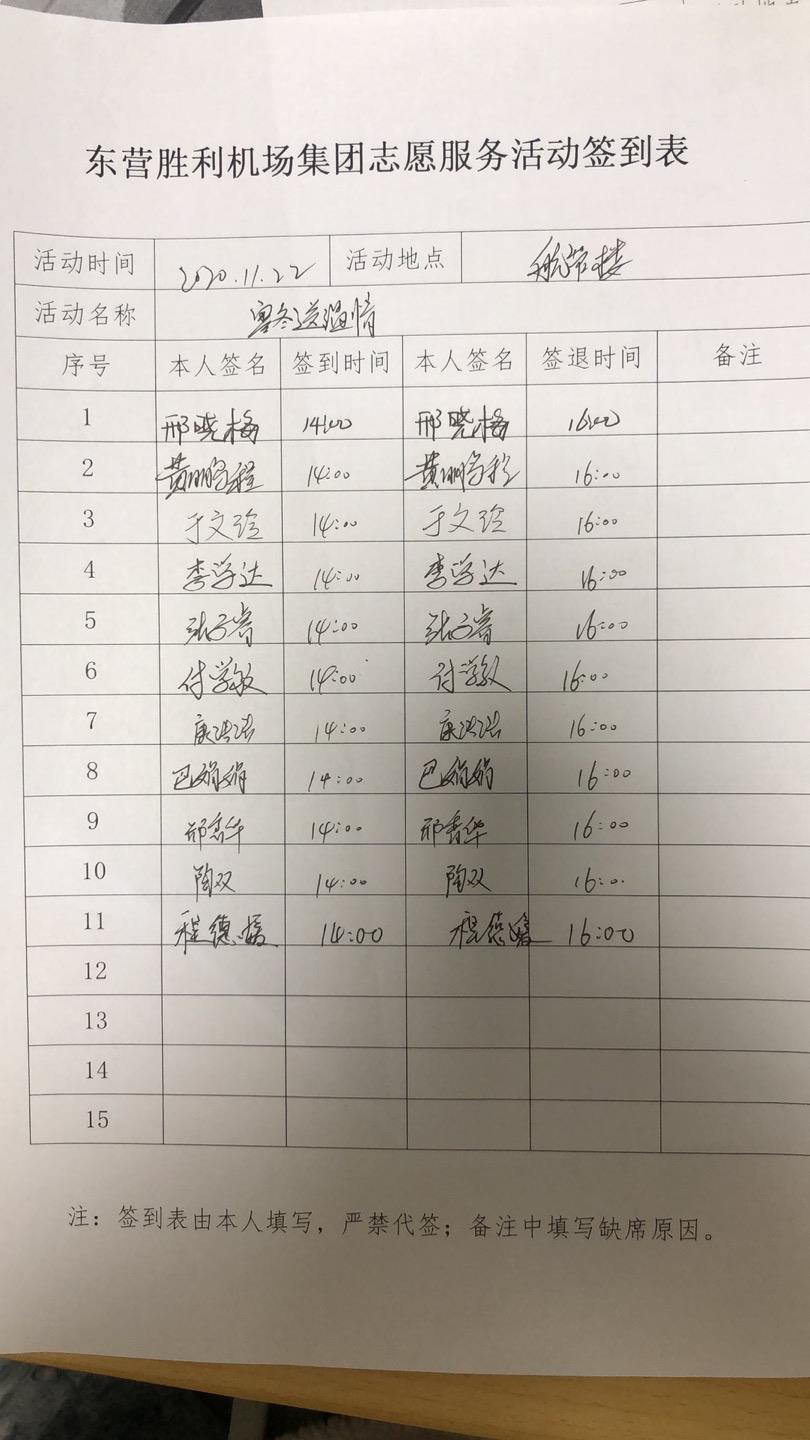 东营胜利机场集团志愿服务活动签到表
活动时间 2020.11.22 活动地点 航管楼
活动名称 寒冬送温情
序号 本人签名 签到时间 本人签名 签退时间 备注
1 邢晓梅 14:00 邢晓梅 16:00
2 黄鹏程 14:00 黄鹏程 16:00
3 于文玲 14:00 于文玲 16:00
4 李学达 14:00 李学达 16:00
5 张子睿 14:00 张子睿 16:00
6 付学敏 14:00 付学敏 16:00
7 康洪浩 14:00 康洪浩 16:00
8 巴娟娟 14:00 巴娟娟 16:00
9 邢春华 14:00 邢春华 16:00
10 陶双 14:00 陶双 16:00
11 程德媛 14:00 程德媛 16:00
12
13
14
15
注：签到表由本人填写，严禁代签；备注中填写缺席原因。